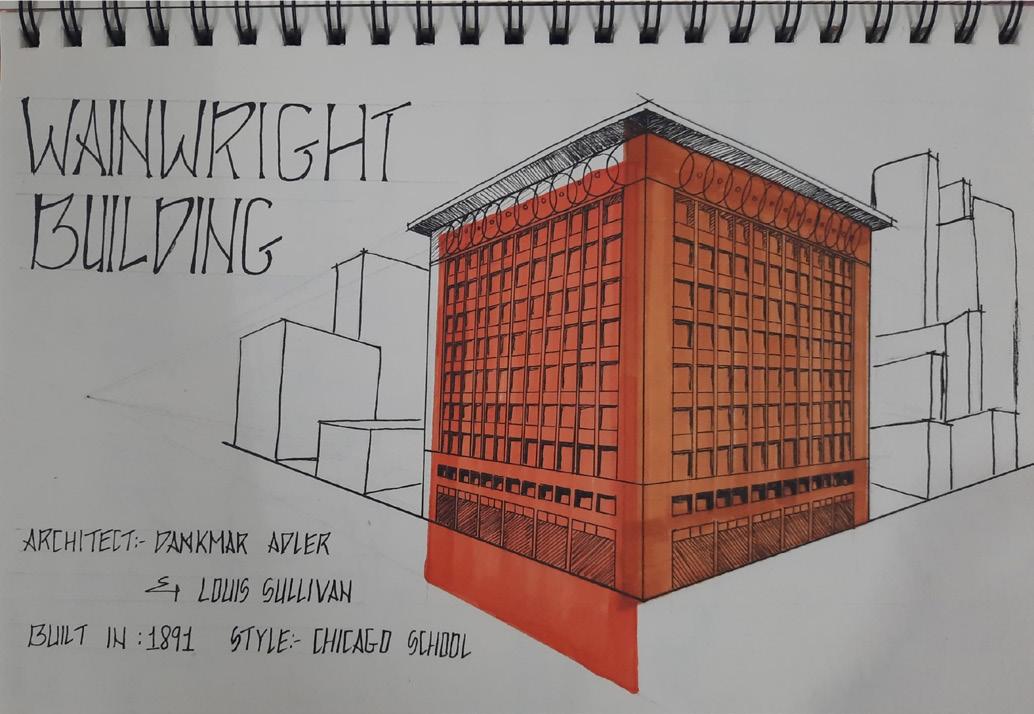 WAINWRIGHT
BUILDING
ARCHITECT:- DANKMAR ADLER
& LOUIS SULLIVAN
BUILT IN : 1891 STYLE:- CHICAGO SCHOOL